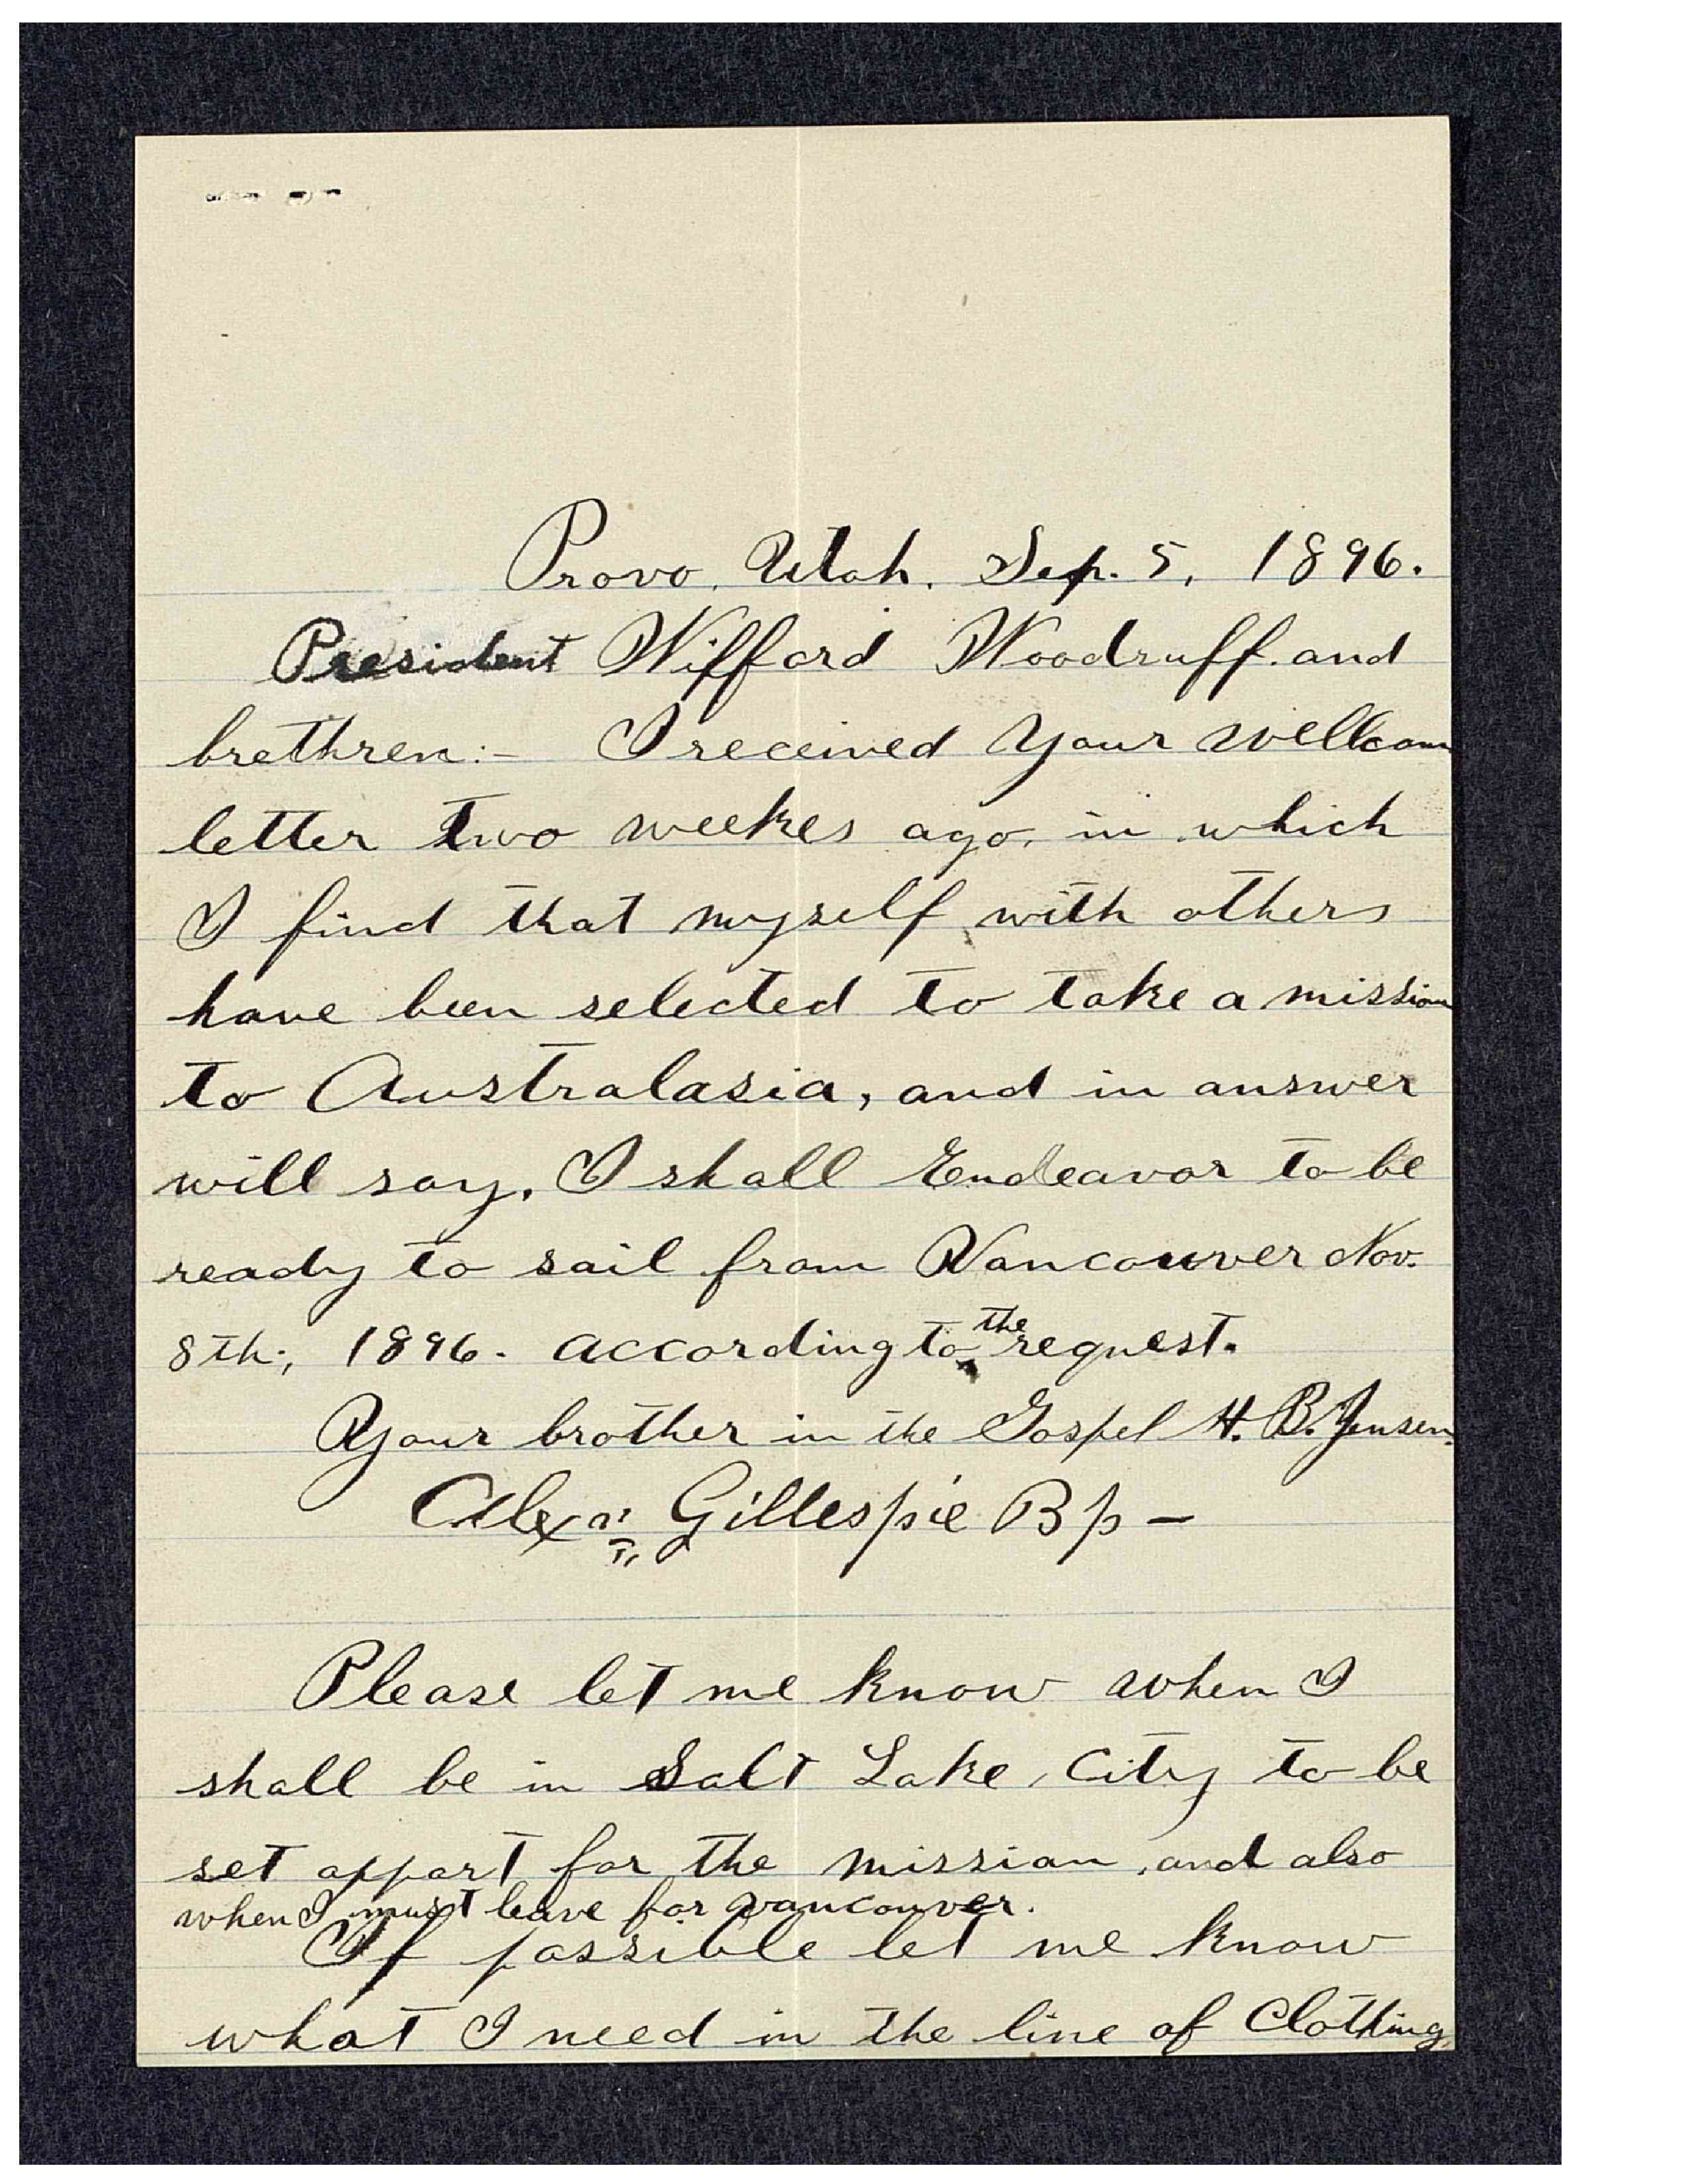 Provo, Utah. Sep. 5, 1896.
President Wifford Woodruff. and
brethren:- I received your wellcome
letter two weekes ago, in which
I find that myself with others
have been selected to take a mission
to Australasia, and in answer
will say, I shall Endeavor to be
ready to sail from Vancouver Nov.
8th;, 1896. according to the request.
Your brother in the Gospel H. B. Jensen.
Alexr Gillespie Bp-
Please let me know when I
shall be in Salt Lake, City to be
set appart for the mission, and also
when I must leave for vancouver.
If possible let me know
what I need in the line of Clothing,